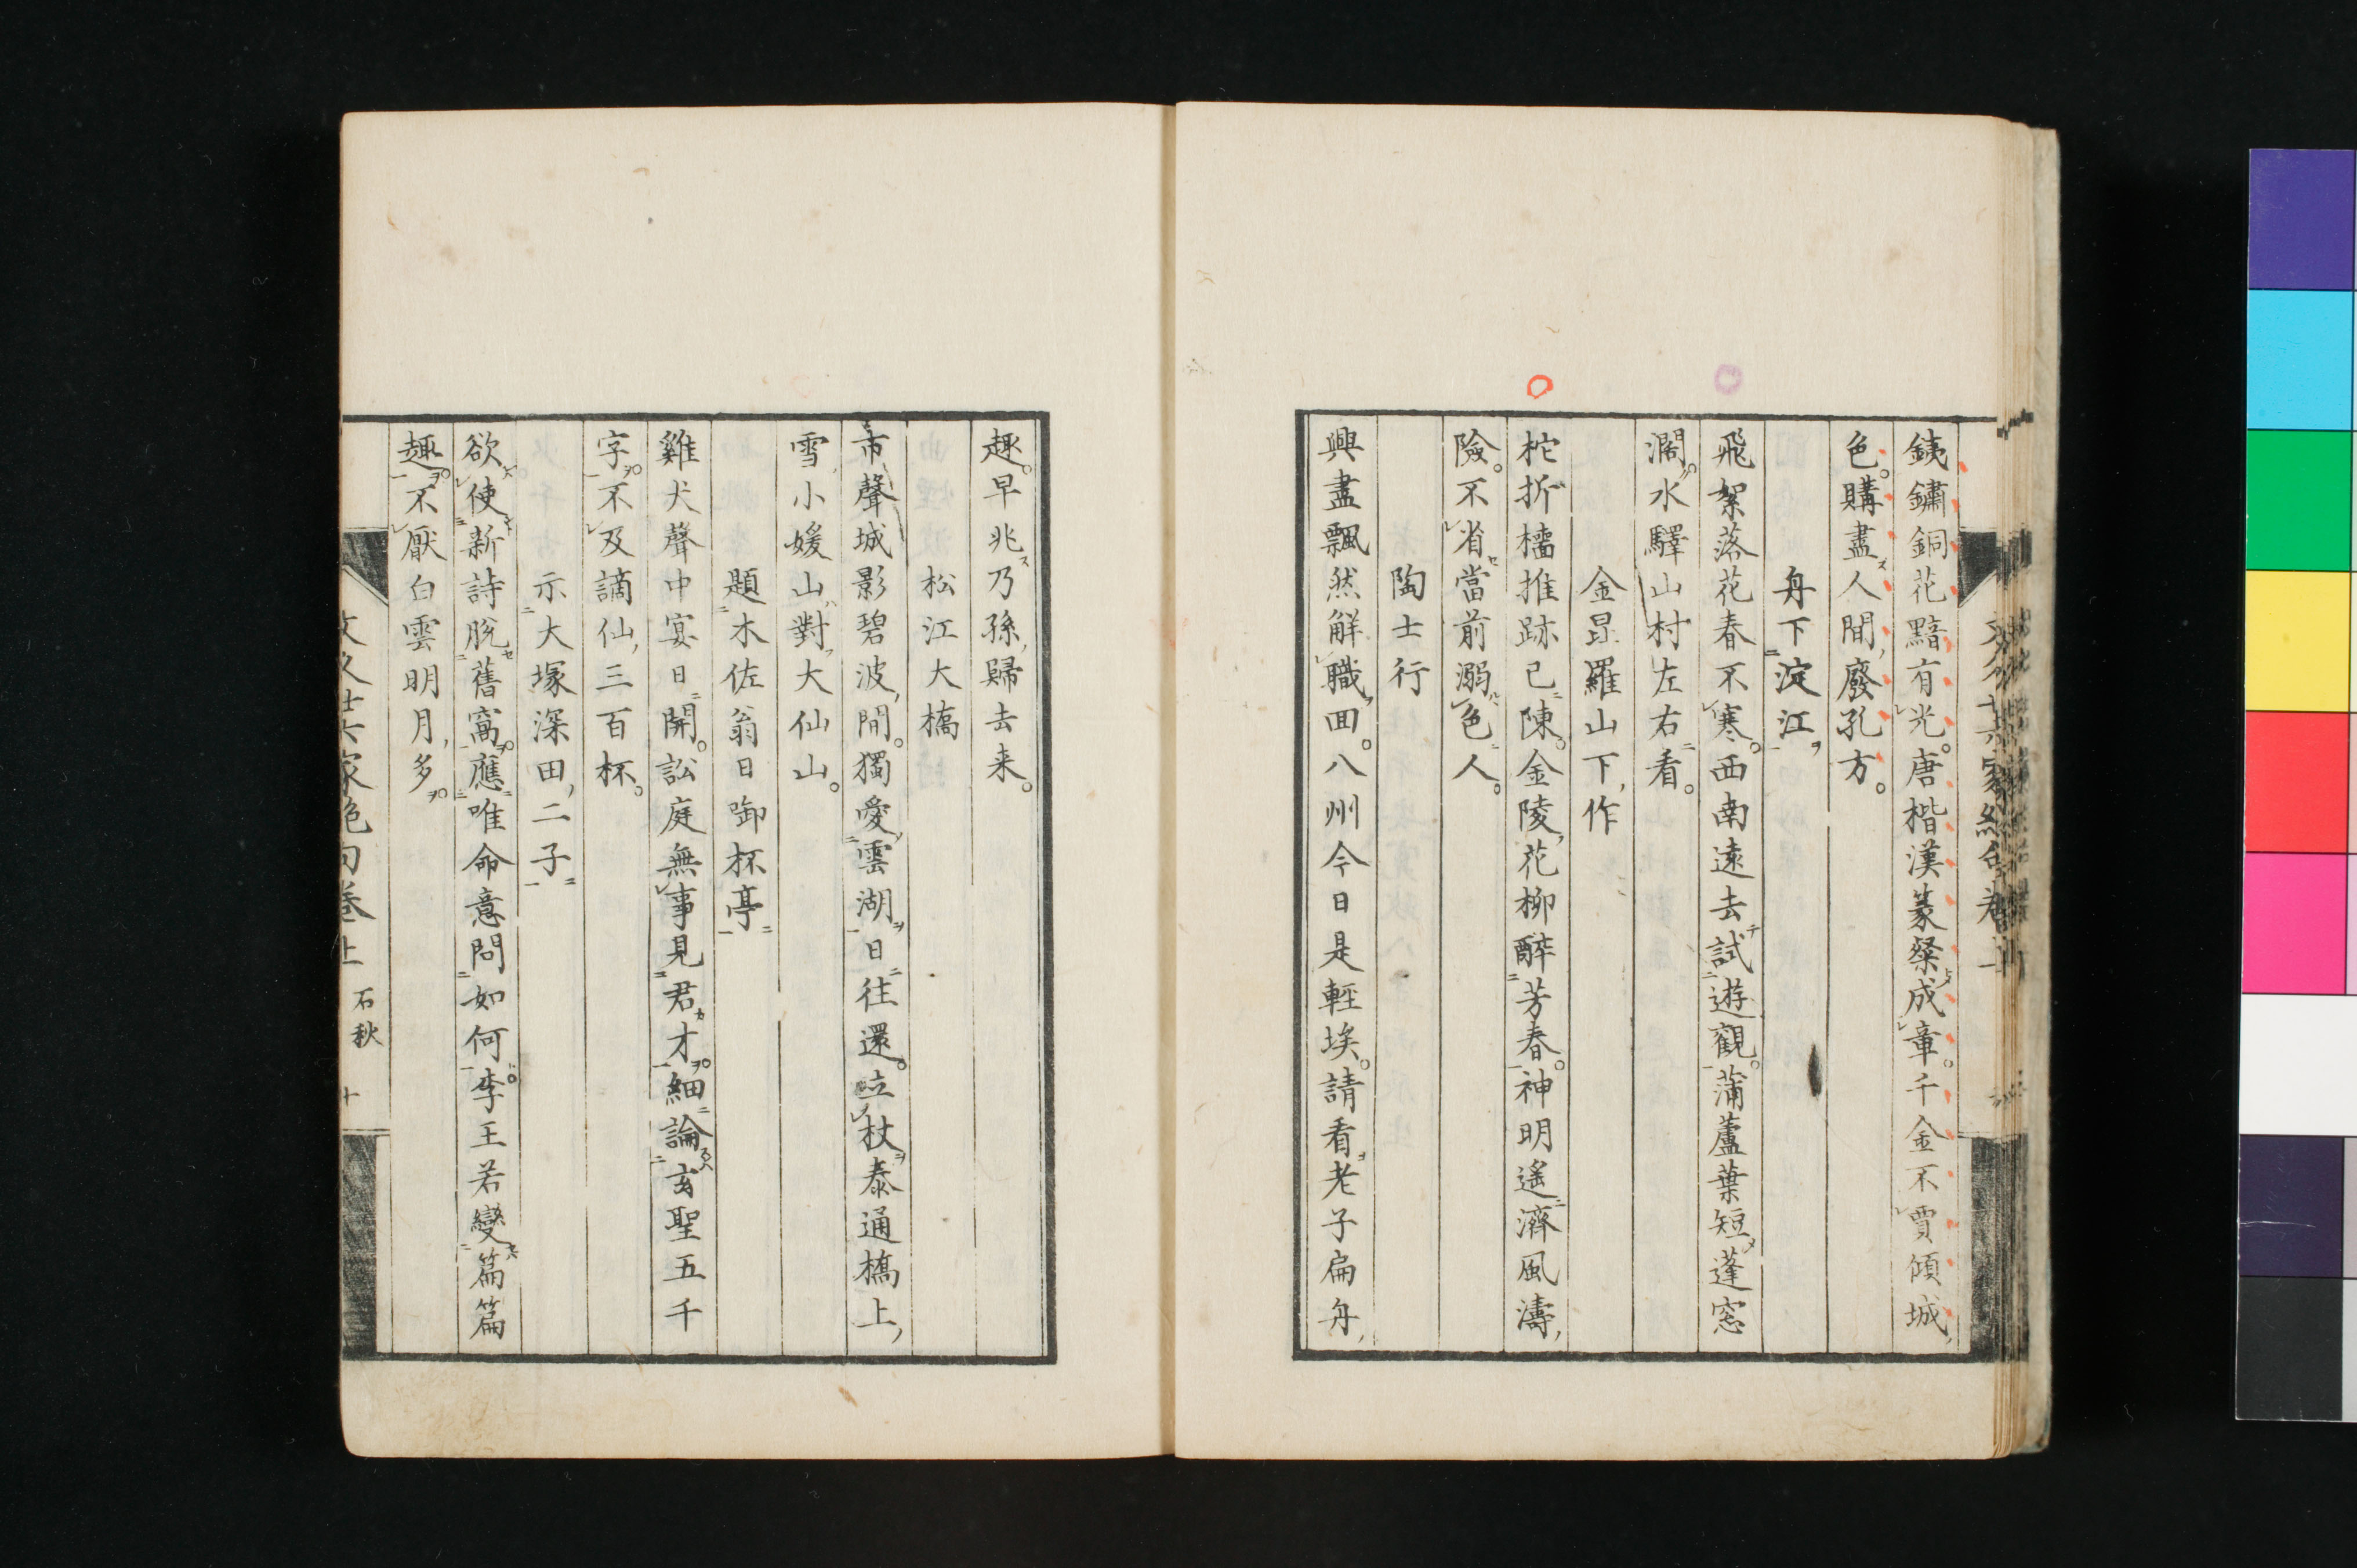 銕鏽銅花黯有光。唐楷漢篆粲成章。千金不賈傾城
色。購盡人間廢孔方。
舟下淀江
飛絮落花春不寒。西南遠去試遊觀。蒲蘆葉短蓬窓
濶。水驛山村左右看。
金昆羅山下作
柁折檣推跡已陳。金陵花柳醉芳春。神明遙濟風濤
險。不省當前溺色人。
陶士行
興盡飄然解職回。八州今日是輕埃。請看老子扁舟
趣。早兆乃孫歸去来。
松江大橋
市聲城影碧波間。獨愛雲湖日往還。竝杖泰通橋上
雪小媛山對大仙山。
題木佐翁日御杯亭
雞犬聲中宴日開。訟庭無事見君才。細論玄聖五千
字。不及謫仙三百杯。
示大塚深田二子
欲使新詩脫舊窩。應唯命意問如何。李王若變篇篇
趣。不厭白雲明月多。
文久廿六家絶句卷上 石秋 十